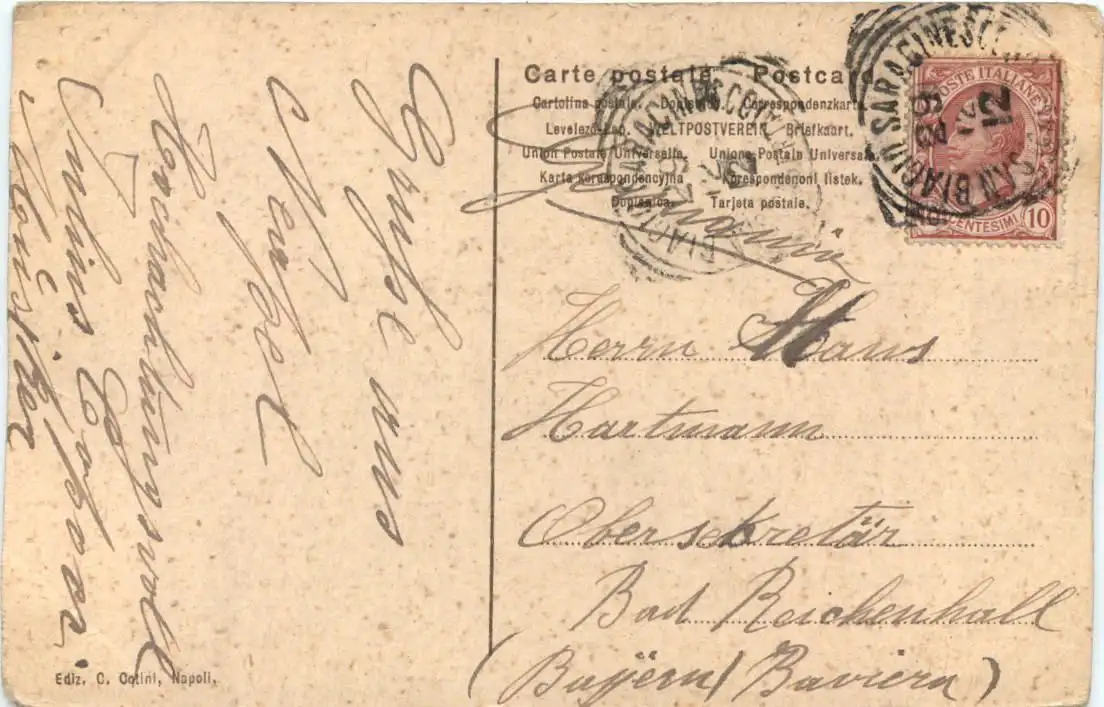 Carte postale. Postcard.
Cartolina postale. Dopisnica. Correspondenzkarte
Levelező-Lap. WELTPOSTVEREIN Briefkaart.
Union Postale Universelle. Unione Postale Universale
Karta korespondencyjna Korespondencni listek.
Dopisnica. Tarjeta postale.
POSTE ITALIANE
CENTESIMI 10
SAN BIAGIO SARACINESCO
12
Herrn Hans
Hartmann
Obersekretär
Bad Reichenhall
(Bayern / Baviera)
Grüße aus
Neapel
Hochachtungsvoll
Ediz. C. Cotini, Napoli.